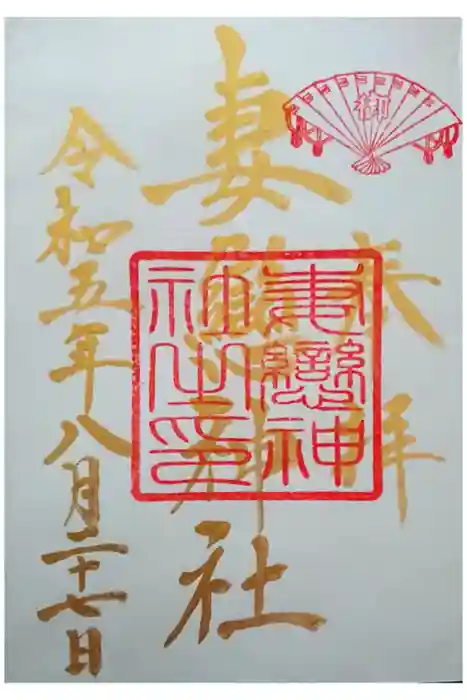 奉拝
妻戀神社
妻戀神
社之印
令和五年八月二十七日